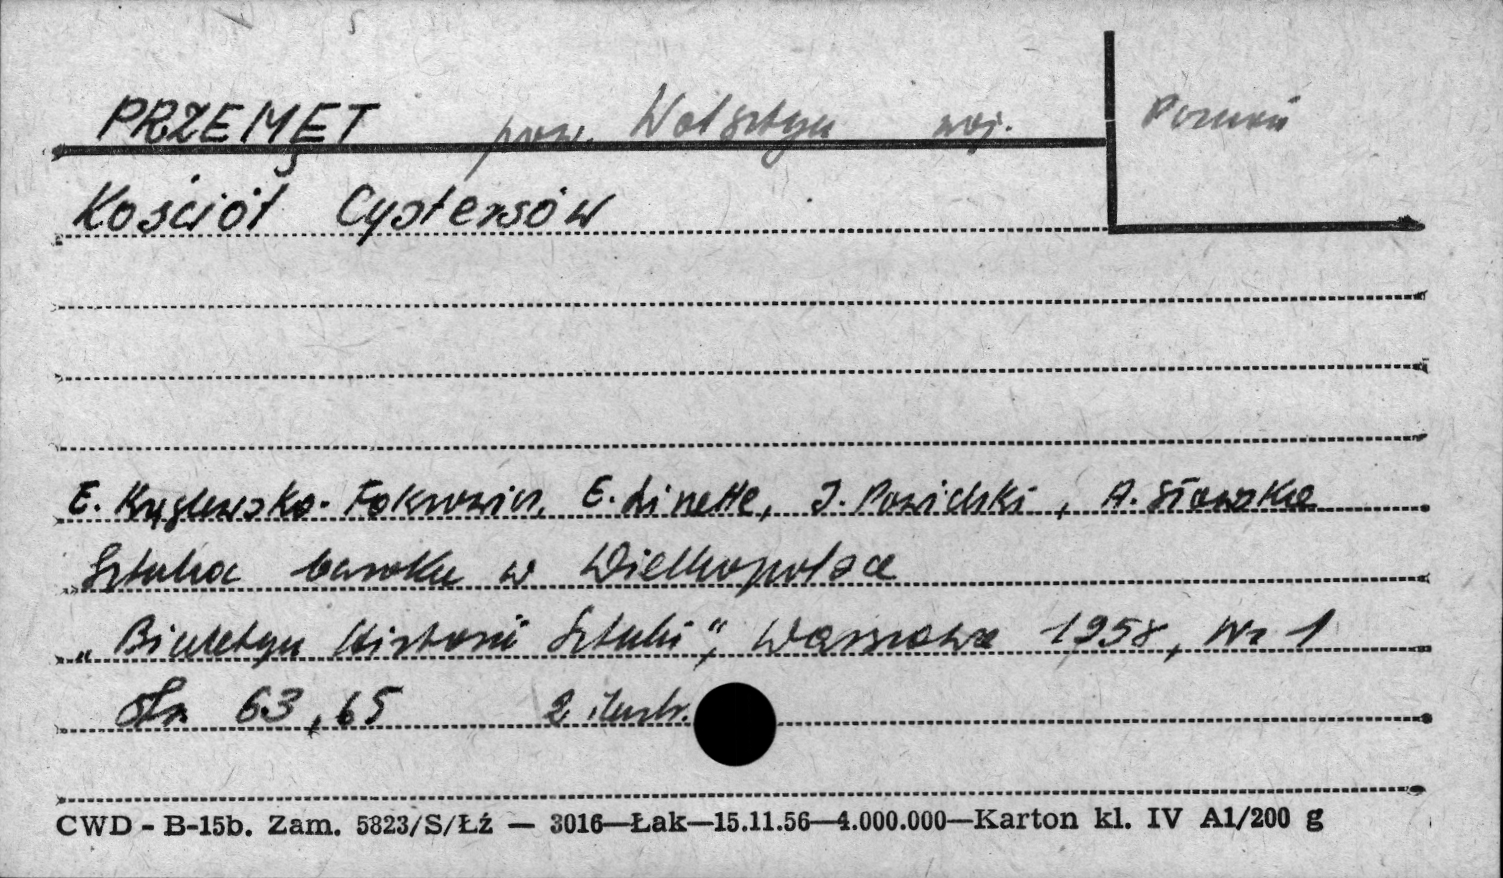 PRZEMĘT pow. Wolsztyn woj. Poznań
Kościół Cystersów
E. Kręglewska-Foksowicz, E. Linette, J. Powidzki, A. Sławska
Sztuka baroku w Wielkopolsce
„Biuletyn Historii Sztuki", Warszawa 1958, Nr 1
str 63, 65 2 ilustr.
CWD - B-15b. Zam. 5823/S/Łź — 3016—Łak—15.11.56—4.000.000—Karton kl. IV A1/200 g